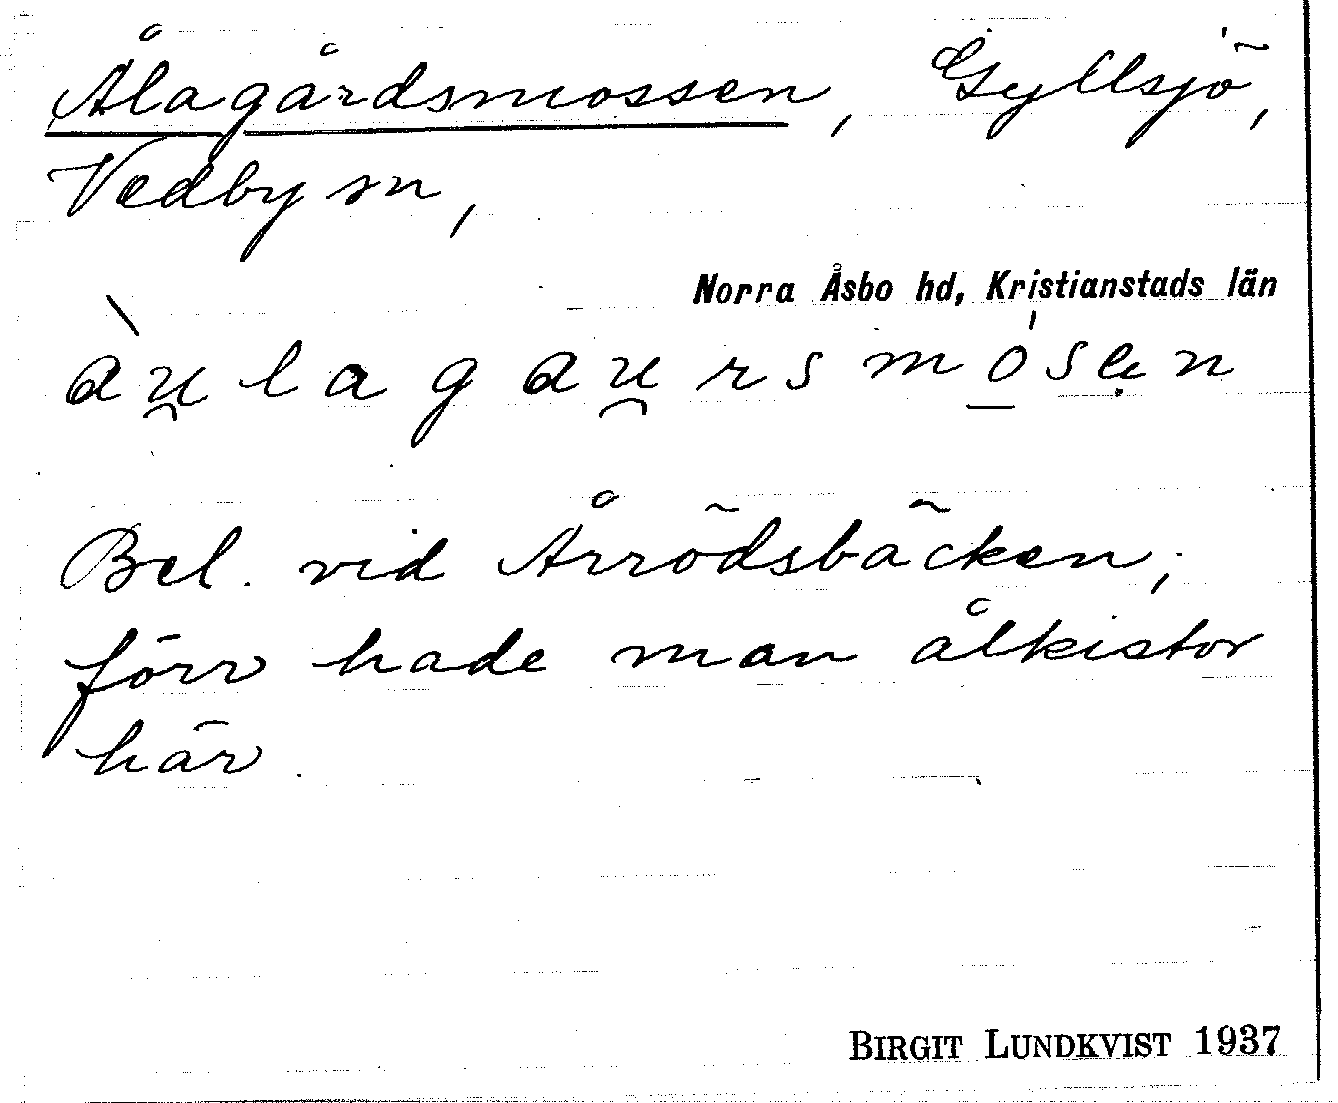 Ålagårdsmossen, Gyllsjö,
Vedby sn,
Norra Åsbo hd, Kristianstads län
àu̯lagau̯rsmó̲sẹn
Bel. vid Årrödsbäcken;
förr hade man ålkistor
här.
BIRGIT LUNDKVIST 1937